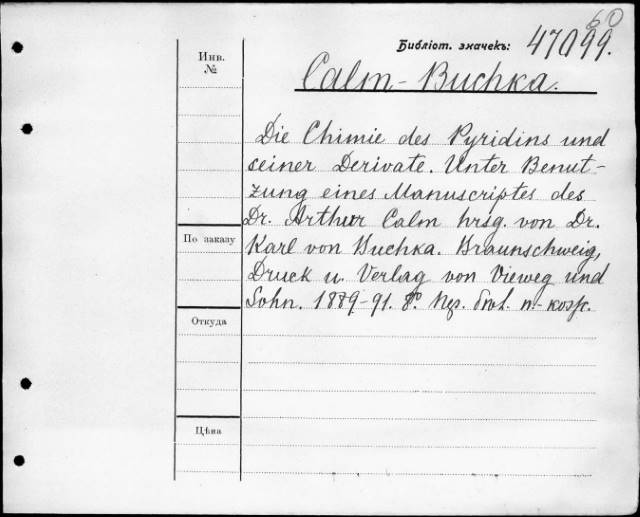 60
Библіот. значекъ: 47099.
Инв.
№
Calm-Buchka.
Die Chimie des Pyridins und
seiner Derivate. Unter Benut-
zung eines Manuscriptes des
Dr. Arthur Calm hrsg. von Dr.
Karl von Buchka. Braunschweig,
Druck u. Verlag von Vieweg und
Sohn. 1889-91. 8°.
По заказу
Откуда
Цѣна